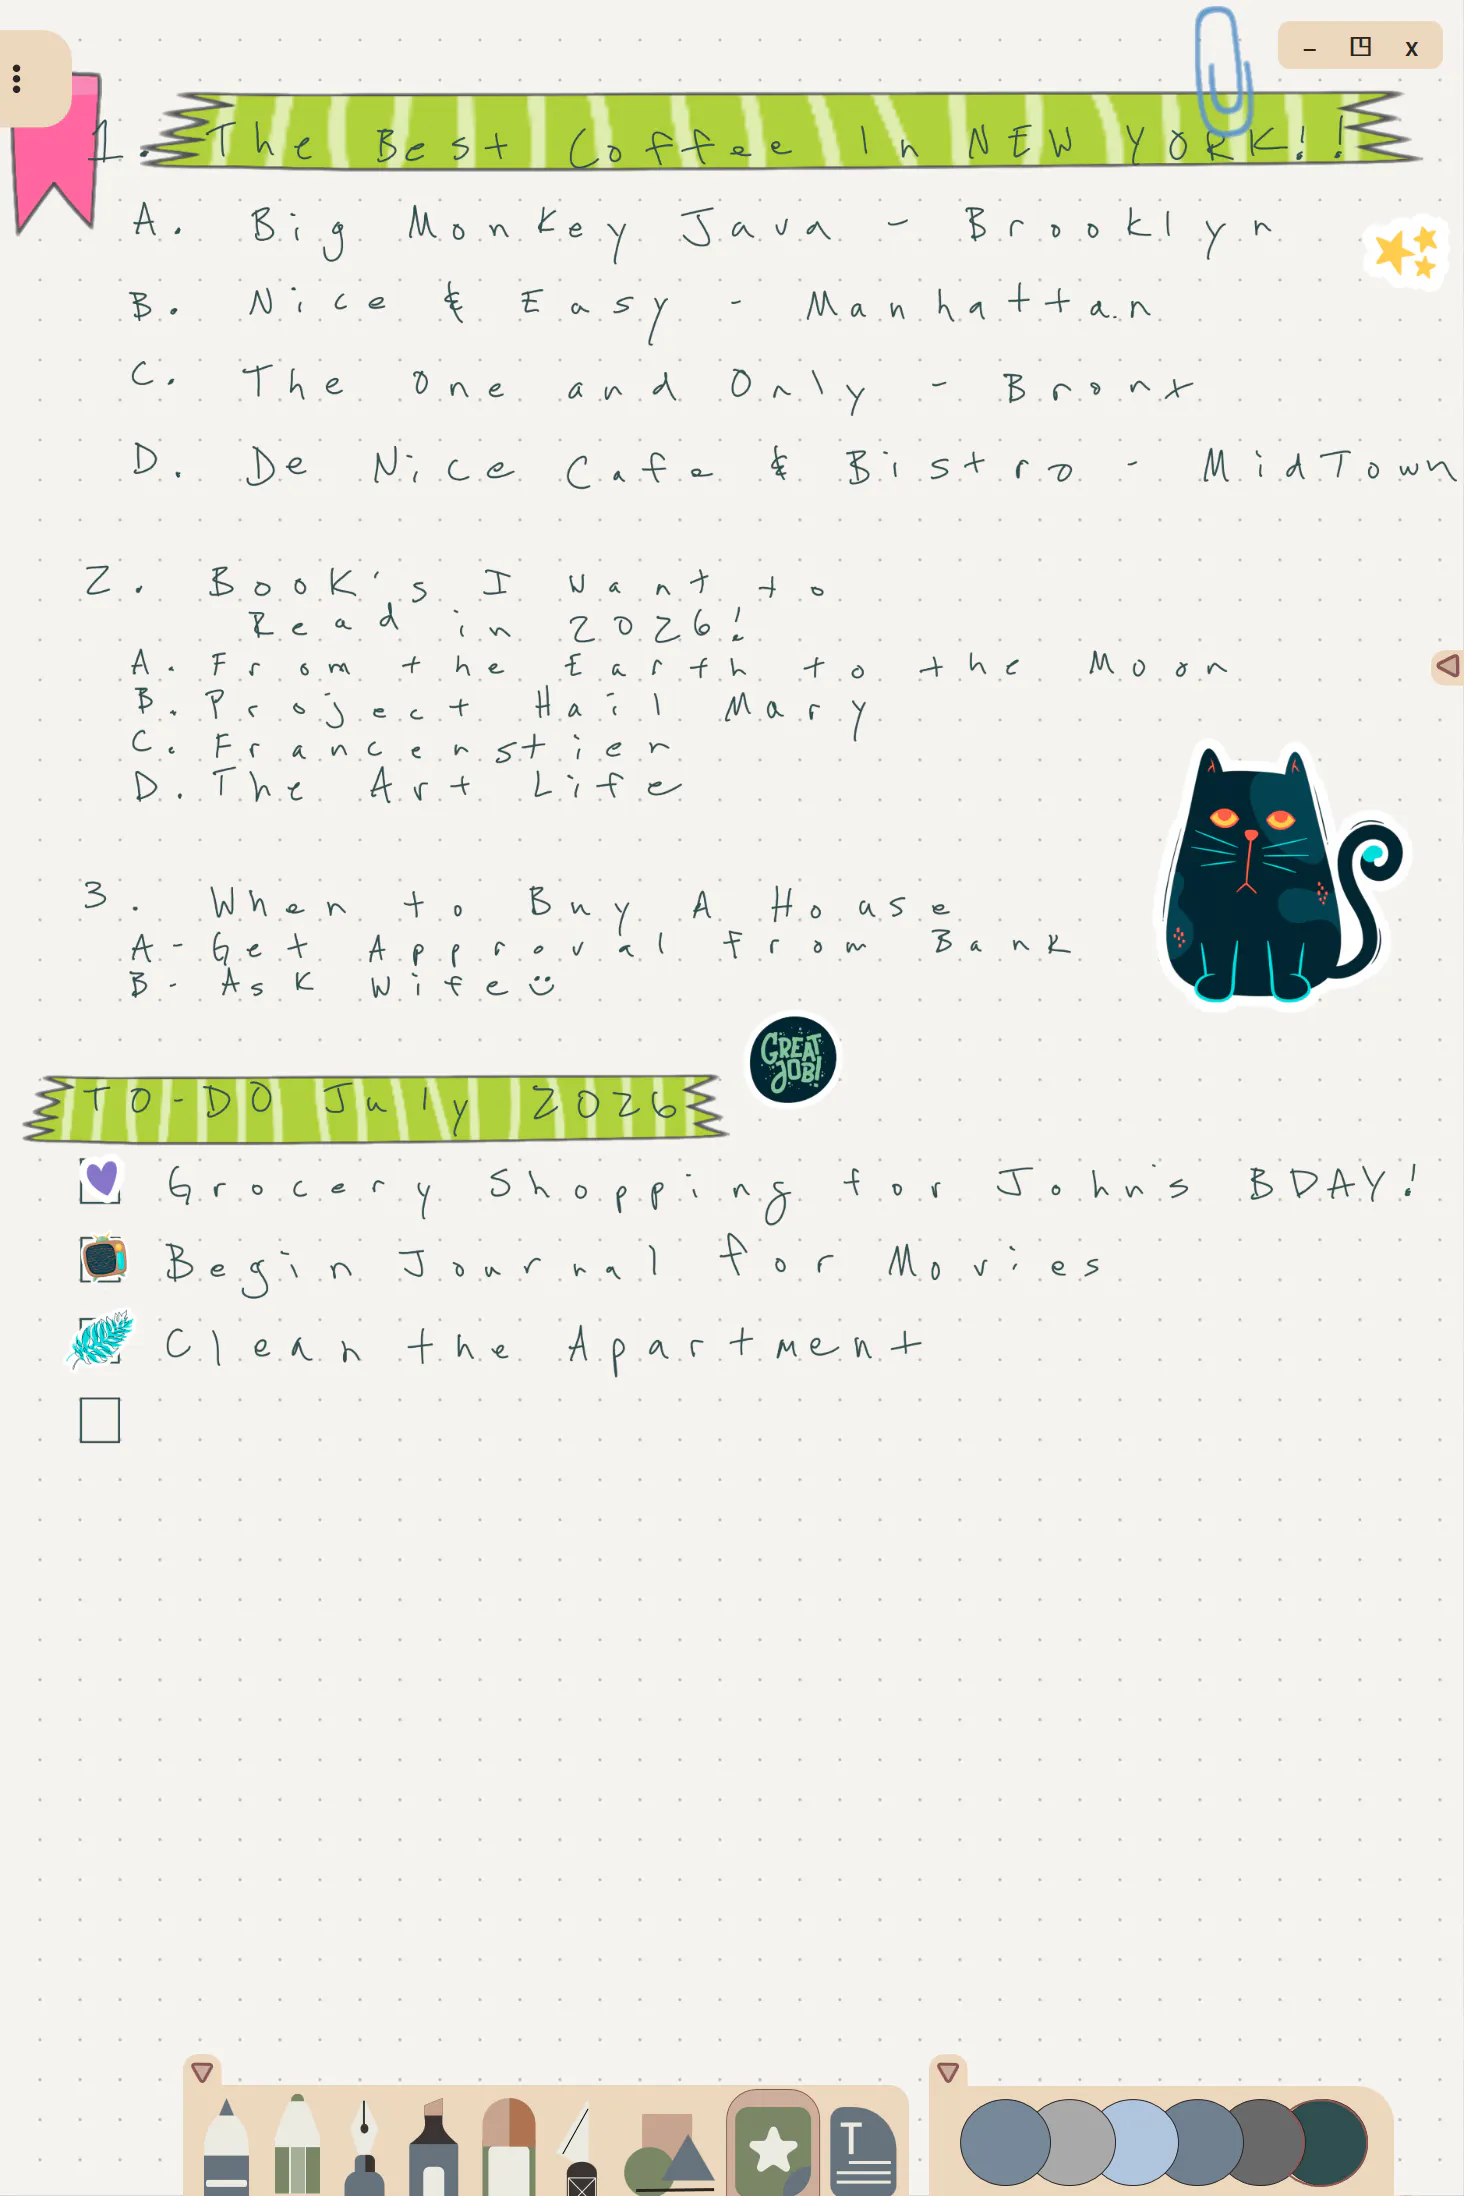 1. The Best Coffee In NEW YORK!!
A. Big Monkey Java - Brooklyn
B. Nice & Easy - Manhattan
C. The One and Only - Bronx
D. De Nice Cafe & Bistro - MidTown
2. Book's I Want to
Read in 2026!
A. From the Earth to the Moon
B. Project Hail Mary
C. Francenstien
D. The Art Life
3. When to Buy A House
A - Get Approval from Bank
B - Ask Wife
GREAT JOB!
TO-DO July 2026
Grocery Shopping for John's BDAY!
Begin Journal for Movies
Clean the Apartment